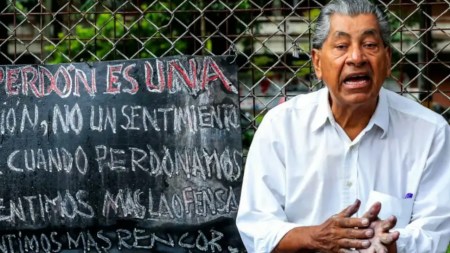 PERDÓN ES UNA
IÓN, NO UN SENTIMIENTO
CUANDO PERDONAMOS
ENTIMOS MAS LA OFENSA
NTIMOS MAS RENCOR,